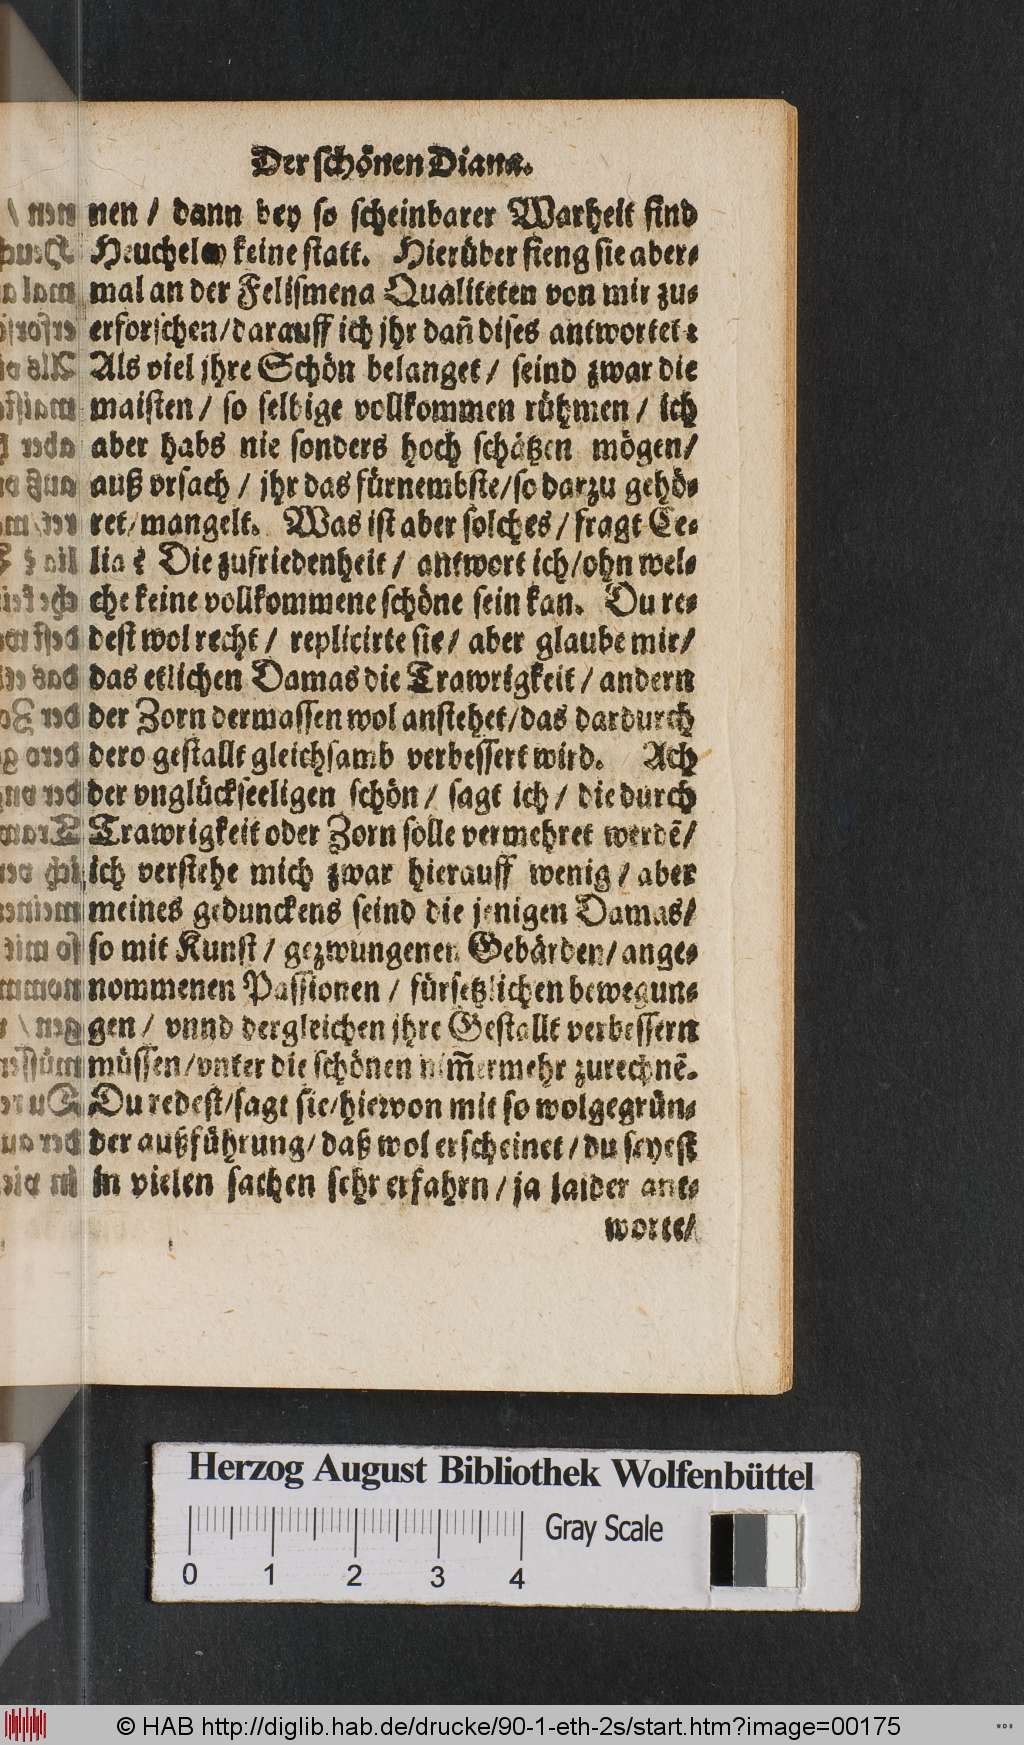 Der schönen Dianæ.
nen / dann bey so scheinbarer Warheit find
Heucheley keine statt. Hierüber fieng sie aber-
mal an der Felismena Qualiteten von mir zu-
erforschen/darauff ich jhr dañ dises antwortet:
Als viel jhre Schön belanget / seind zwar die
maisten / so selbige vollkommen rühmen / ich
aber habs nie sonders hoch schätzen mögen/
auß vrsach / jhr das fürnembste/so darzu gehö-
ret/mangelt. Was ist aber solches / fragt Ce-
lia? Die zufriedenheit / antwort ich/ohn wel-
che keine vollkommene schöne sein kan. Du re-
dest wol recht / replicirte sie / aber glaube mir/
das etlichen Damas die Trawrigkeit / andern
der Zorn dermassen wol anstehet/das dardurch
dero gestallt gleichsamb verbessert wird. Ach
der vnglückseeligen schön / sagt ich / die durch
Trawrigkeit oder Zorn solle vermehret werdẽ/
ich verstehe mich zwar hierauff wenig / aber
meines gedunckens seind die jenigen Damas/
so mit Kunst / gezwungenen Gebärden/ ange-
nommenen Passionen / fürsetzlichen bewegun-
gen / vnnd dergleichen jhre Gestallt verbessern
müssen/vnter die schönen nim̃ermehr zurechnẽ.
Du redest/sagt sie/hiervon mit so wolgegrün-
der außführung/ daß wol erscheinet / du seyest
in vielen sachen sehr erfahrn / ja laider ant-
worte/
Herzog August Bibliothek Wolfenbüttel
Gray Scale
0 1 2 3 4
© HAB http://diglib.hab.de/drucke/90-1-eth-2s/start.htm?image=00175